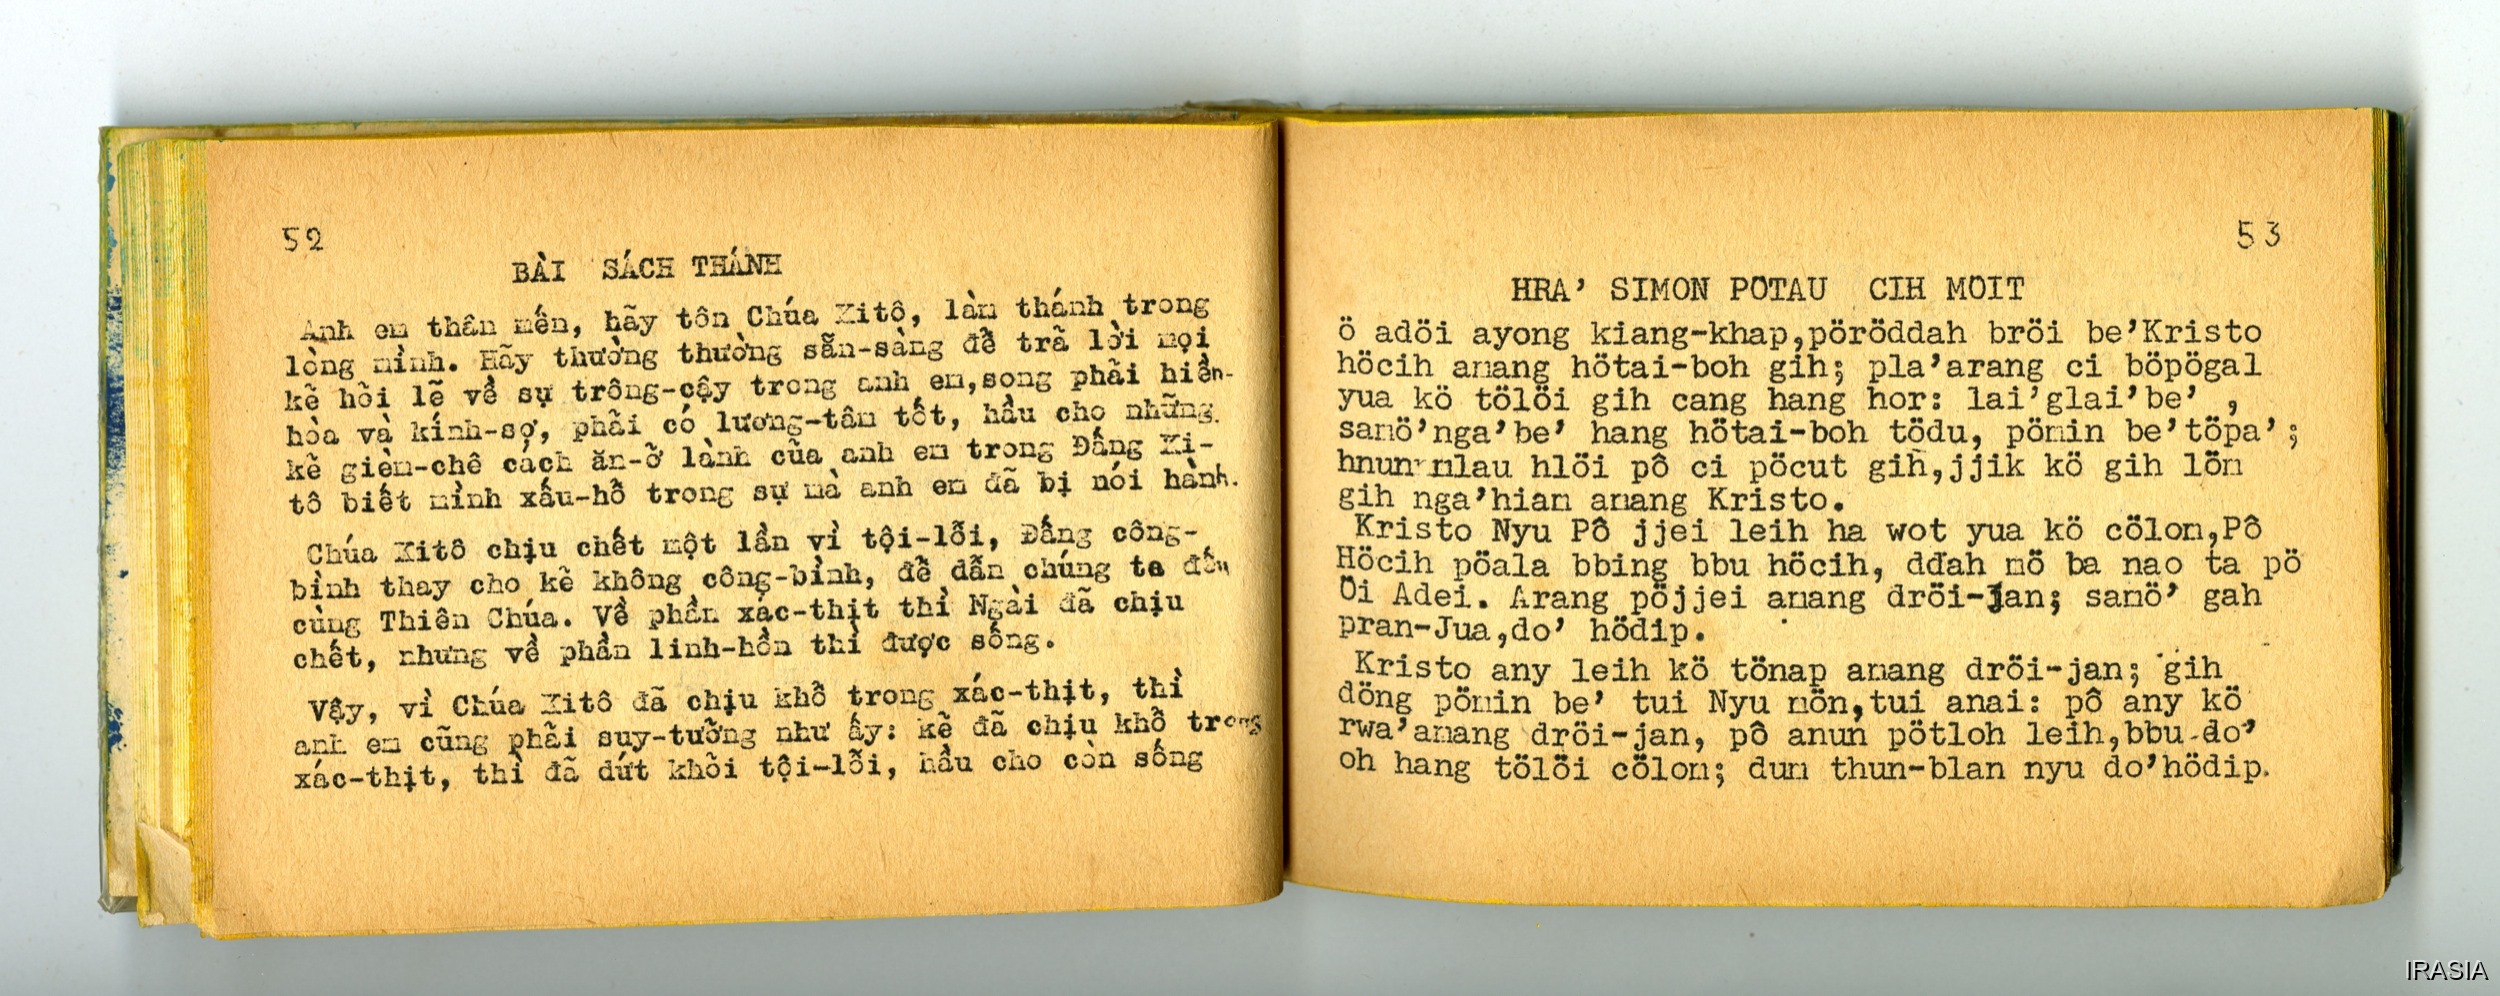 52
BÀI SÁCH THÁNH
Anh em thân mến, hãy tôn Chúa Kitô, làm thánh trong
lòng mình. Hãy thường thường sẵn-sàng để trã lời mọi
kẽ hõi lẽ về sự trông-cậy trong anh em,song phãi hiền-
hòa và kính-sợ, phãi có lương-tâm tốt, hầu cho những
kẽ gièm-chê cách ăn-ỡ lành cũa anh em trong Đấng Ki-
tô biết mình xấu-hỗ trong sự mà anh em đã bị nói hành.
Chúa Kitô chịu chết một lần vì tội-lỗi, Đấng công-
bình thay cho kẽ không công-bình, để dẫn chúng ta đến
cùng Thiên Chúa. Về phần xác-thịt thì Ngài đã chịu
chết, nhưng về phần linh-hồn thì được sống.
Vậy, vì Chúa Kitô đã chịu khỗ trong xác-thịt, thì
anh em cũng phãi suy-tưỡng như ấy: kẽ đã chịu khỗ trong
xác-thịt, thì đã dứt khõi tội-lỗi, hầu cho còn sống
53
HRA' SIMON PÖTAU CIH MÖIT
ö adöi ayong kiang-khap,pöröddah bröi be'Kristo
höcih amang hötai-boh gih; pla'arang ci böpögal
yua kö tölöi gih cang hang hor: lai'glai'be' ,
samö'nga'be' hang hötai-boh tödu, pömin be'töpa';
hnun mlau hlöi pô ci pöcut gih,jjik kö gih löm
gih nga'hiam amang Kristo.
Kristo Nyu Pô jjei leih ha wot yua kö cölom,Pô
Höcih pöala bbing bbu höcih, dđah mö ba nao ta pö
Öi Adei. Arang pöjjei amang dröi-jan; samö' gah
pran-Jua,do' hödip.
Kristo any leih kö tönap amang dröi-jan; gih
döng pömin be' tui Nyu mön,tui anai: pô any kö
rwa'amang dröi-jan, pô anun pötloh leih,bbu do'
oh hang tölöi cölom; dum thun-blan nyu do'hödip.
IRASIA